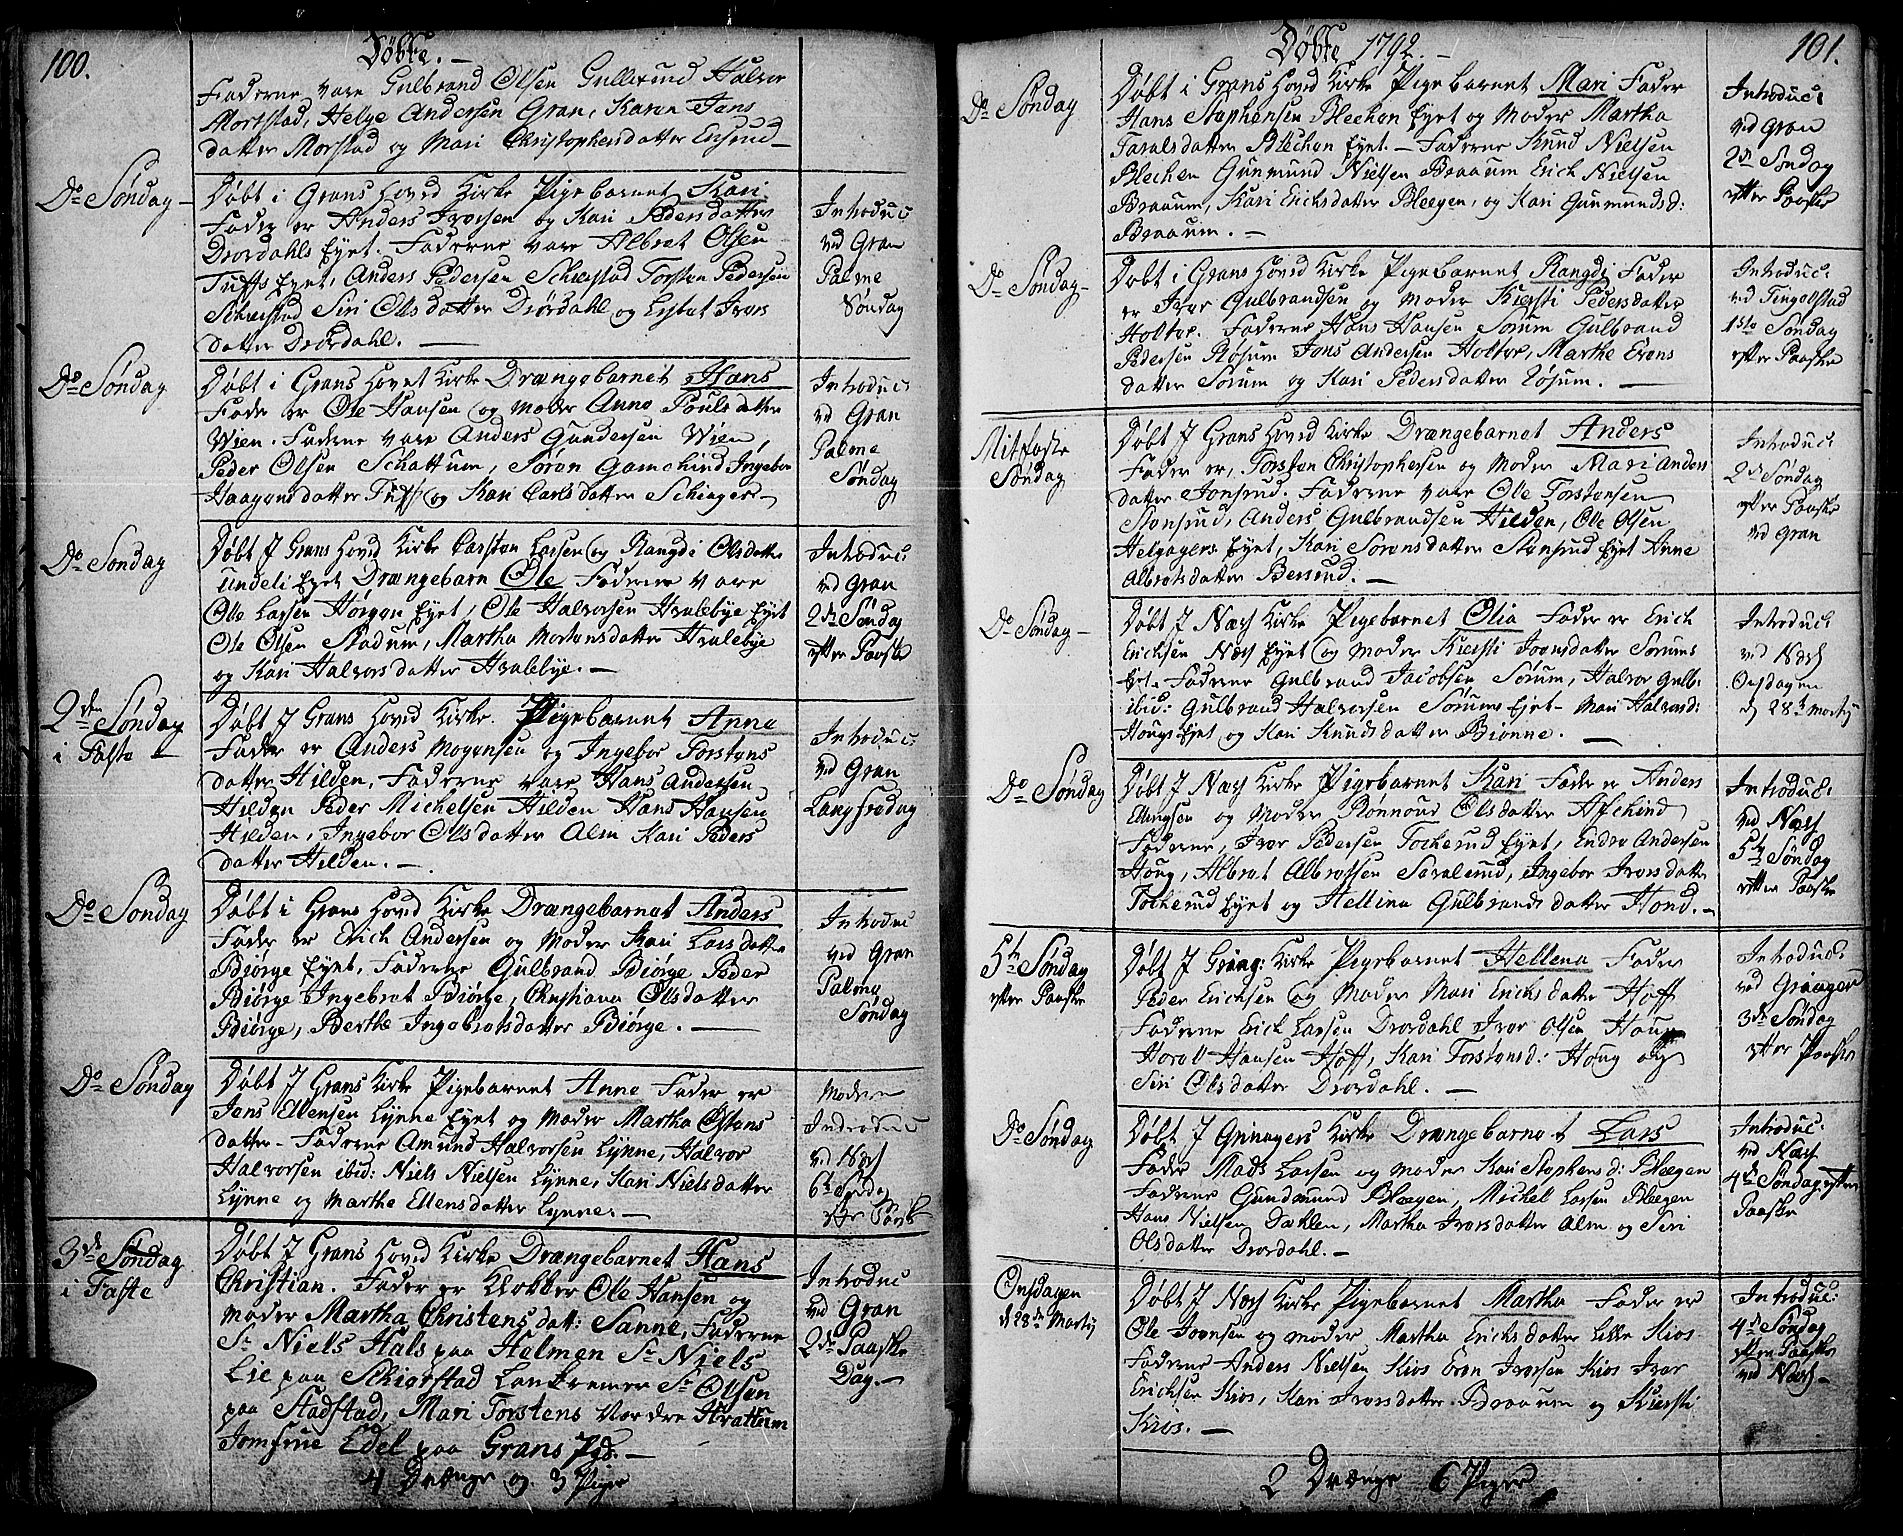 100.
Døbte. —
Faderne vare Gulbrand Olsen Gullerud Halvor
Morstad, Helge Andersen Gran, Karen Jens
datter Morstad og Mari Christophersdatter Eidsrud —
Do Søndag —
Døbt i Grans Hovid Kirke Pigebarnet Kari
Fader er Anders Iversen og Kari Pedersdatter
Drørdahls Eyet. Faderne vare Albret Olsen
Tuffs Eyet, Anders Pedersen Schierstad Torsten Pedersen
Schierstad Siri Olsdatter Drørdahl og Lisbet Ivers
datter Drørdahl. —
Introduc
ved Gran
Palme
Søndag
Do Søndag
Døbt i Grans Hovet Kirke Drængebarnet Hans
Fader er Ole Hansen og Moder Anne Poulsdatter
Wien. Faderne vare Anders Gundersen Wien,
Peder Olsen Schattum, Søren Gamchind Ingebor
Haagensdatter Tuff og Kari Carlsdatter Schiager —
Introduc:
ved Gran
Palme
Søndag
Do Søndag
Døbt I Grans Hovid Kirke Carsten Larsen og Rangdi Olsdatter
Undeli Eyet Drængebarn Ole Faderne vare
Ole Larsen Hørgen Eyet, Ole Halvorsen Hvalebye Eyet
Ole Olsen Stadum, Martha Mortensdatter Hvalebye
og Kari Halvorsdatter Hvalebye. —
Introduc:
ved Gran
2de Søndag
efter Paaske
2den Søndag
i Faste —
Døbt I Grans Hovid Kirke. Pigebarnet Anne
Fader er Anders Mogensen og Ingebor Torstens
datter Hilden, Faderne vare Hans Andersen
Hilden Peder Michelsen Hilden Hans Hansen
Hilden, Ingebor Olsdatter Alm Kari Peders
datter Hilden. —
Introduc:
ved Gran
Langfredag
Do Søndag
Døbt i Grans Hovid Kirke Drængebarnet Anders
Fader er Erich Andersen og Moder Kari Larsdatter
Biørge Eyet, Faderne Gulbrand Biørge Peder
Biørge Ingebret Biørge, Christiana Olsdatter
Biørge, Berthe Ingebretsdatter Biørge. —
Introduc
ved Gran
Palme
Søndag
Do Søndag
Døbt I Grans Kirke Pigebarnet Anne Fader er
Jens Ellensen Lynne Eyet og Moder Martha Østens
datter — Faderne Amund Halvorsen Lynne, Halvor
Halvorsen ibid: Niels Nielsen Lynne, Kari Nielsdatter
Lynne og Marthe Ellensdatter Lynne. —
Moderen
Introduc
ved Næss
6te Søndag
efter Paaske
3de Søndag
i Faste
Døbt I Grans Hovid Kirke Drængebarnet Hans
Christian. Fader er Klokker Ole Hansen og
Moder Martha Christensdatt: Sanne, Faderne
Sr Niels Hals paa Helmen Sr Niels
Lie paa Schierstad Sr Olsen
paa Stadstad, Mari Torstens Nordre Hvattum
Jomfrue Edel paa Grans Pgd. —
Introduc
ved Gran
2den Paaske
Dag. —
4 Drænge og 3 Piger
Døbte 1792. —
101.
Do Søndag
Døbt i Grans Hovid Kirke Pigebarnet Mari Fader
Hans Stephensen Blechen Eyet og Moder Martha
Taralsdatter Blechen Eyet. — Faderne Knud Nielsen
Blechen Gunmund Nielsen Braaum Erich Nielsen
Braaum, Kari Erichsdatter Bleegen, og Kari Gunmundsd:
Braaum. —
Introduc:
ved Gran
2de Søndag
efter Paaske
Do Søndag —
Døbt i Grans Hovid Kirke Pigebarnet Rangdi Fader
er Iver Gulbrandsen og Moder Kiersti Pedersdatter
Holter. Faderne Hans Hansen Sørum Gulbrand
Pedersen Røsum Jens Andersen Holter, Marthe Evens
datter Sørum og Kari Pedersdatter Løsum. —
Introduc:
ved Tingelstad
1ste Søndag
efter Paaske
Mitfaste
Søndag
Døbt I Grans Hovid Kirke Drængebarnet Anders
Fader er, Torsten Christophersen og Moder Mari Anders
datter Jonsrud. Faderne vare Ole Torstensen
Stensrud, Anders Gulbrandsen Hilden, Ole Olsen
Helgagers Eyet, Kari Sørensdatter Stensrud Eyet Anne
Albretsdatter Bersrud. —
Introduc:
2de Søndag
efter Paaske
ved Gran
Do Søndag —
Døbt I Næss Kirke Pigebarnet Olia Fader er Erich
Erichsen Næss Eyet og Moder Kiersti Iversdatter Sørums
Eyet. Faderne Gulbrand Jacobsen Sørum, Halvor Gulb:
ibid: Gulbrand Halvorsen Sørum Eyet — Mari Halvorsd:
Hougs Eyet og Kari Knudsdatter Biønne. —
Introduc:
ved Næss
Onsdagen
d 28de Martij
Do Søndag
Døbt I Næss Kirke Pigebarnet Kari Fader er Anders
Ellingsen og Moder Rønnoug Olsdatter Afschind
Faderne, Iver Pedersen Tocherud Eyet, Endre Andersen
Houg, Albret Albretsen Sørlerud, Ingebor Iversdatter
Tocherud Eyet og Hellina Gulbrandsdatter Hond. —
Introduc:
ved Næss
5te Søndag
efter Paaske
5te Søndag
efter Paaske
Døbt I Grinag: Kirke Pigebarnet Hellena Fader
Peder Erichsen og Moder Mari Erichsdatter Hoff
Faderne Erich Larsen Drørdahl Iver Olsen Houg
Horall Hansen Hoff, Kari Torstensd: Houg og
Siri Olsdatter Drørdahl. —
Introduc:
ved Grinager
3de Søndag
efter Paaske
Do Søndag
Døbt I Grinagers Kirke Drængebarnet Lars
Fader Mads Larsen og Moder Kari Stephensd: Bleegen
Faderne Gundmund Bleegen, Michel Larsen Bleegen
Hans Nielsen Dæhlen, Martha Iversdatter Alm og Siri
Olsdatter Drørdahl. —
Introduc:
ved Næss
4de Søndag efter
Paaske
Onsdagen
d 28de Martij
Døbt I Næss Kirke Pigebarnet Martha Fader er
Ole Iversen og Moder Martha Erichsdatter Lille Kios.
Faderne Anders Nielsen Kios Even Iversen Kios Iver
Erichsen Kios, Kari Iversdatter Braaum og Kiersti
Kios. —
Introduc:
4de Søndag
efter Paaske
ved Næss —
2 Drænge 6 Piger